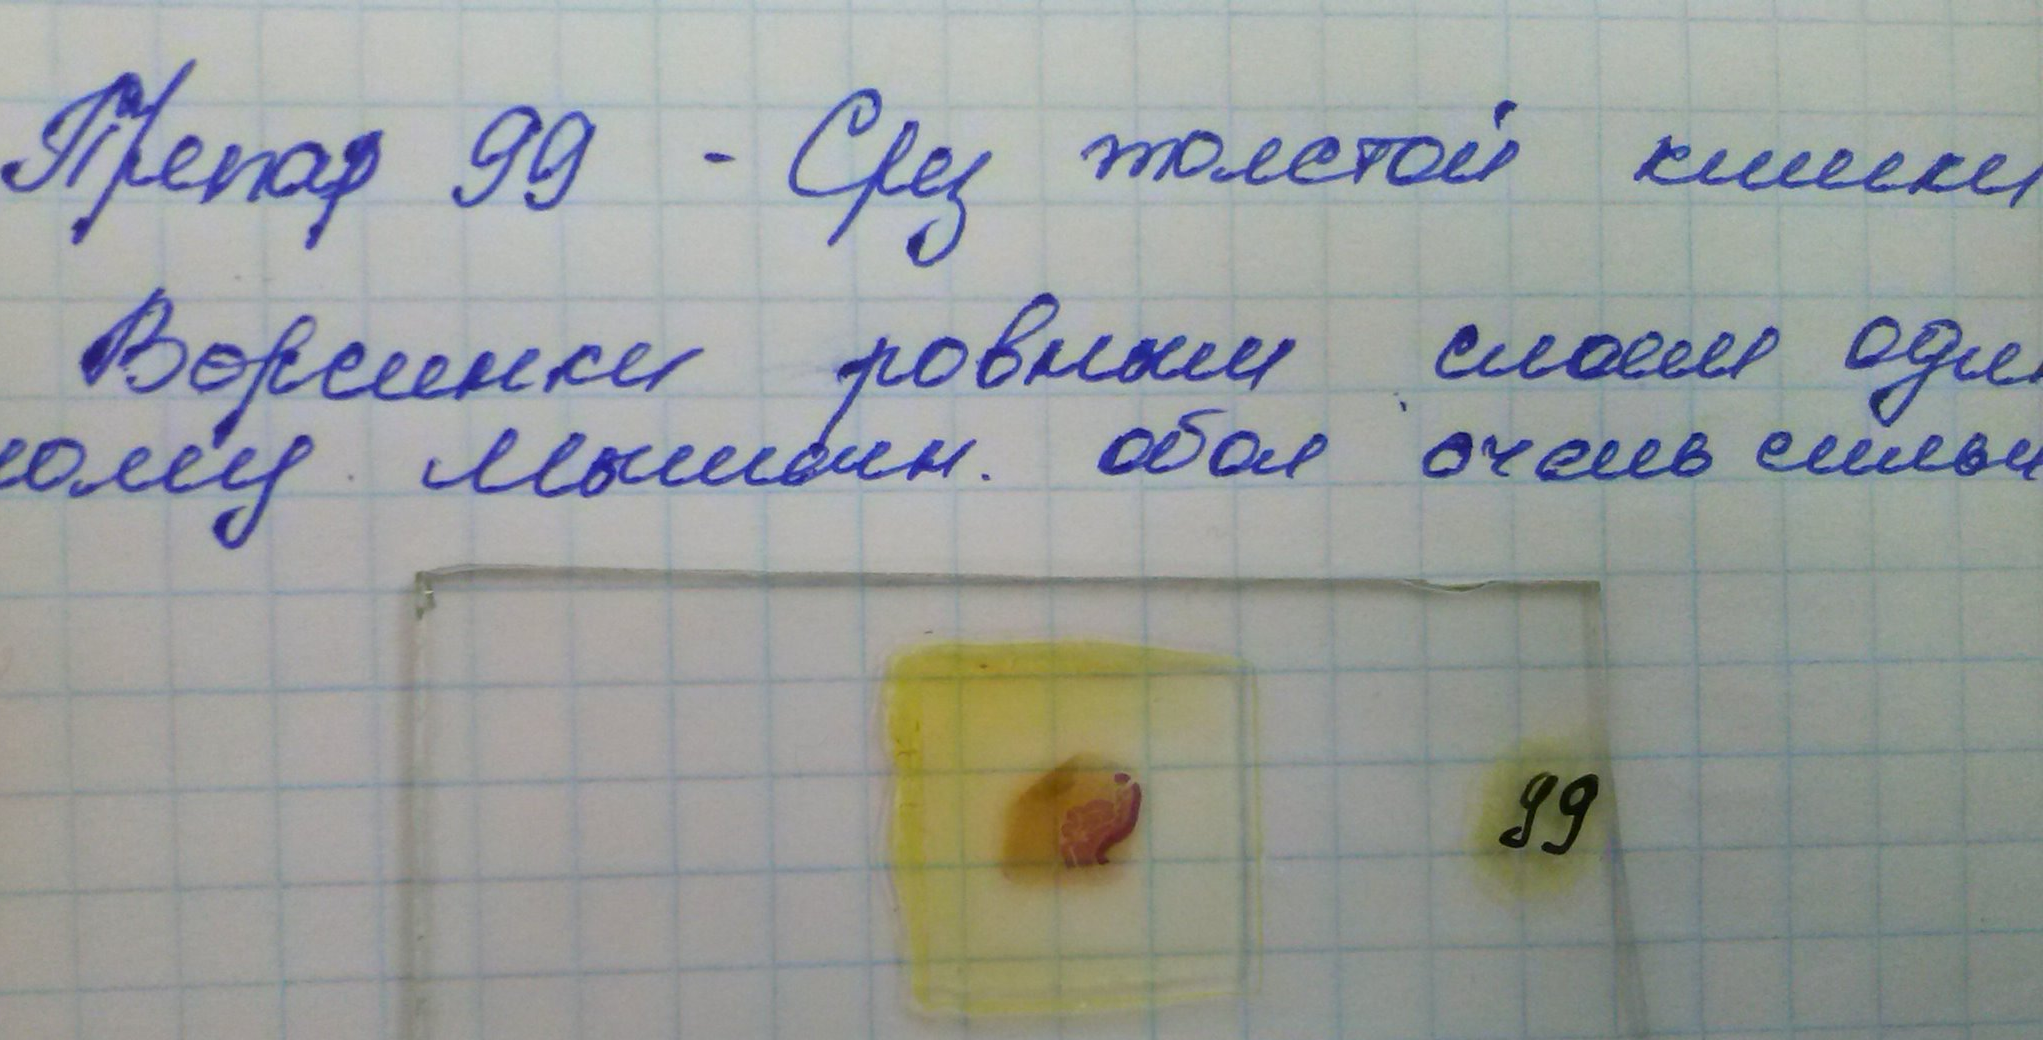 Препар 99 - Срез толстой кишки
Ворсинки ровным слоем один
кому мышичн. обол очень сильн
99